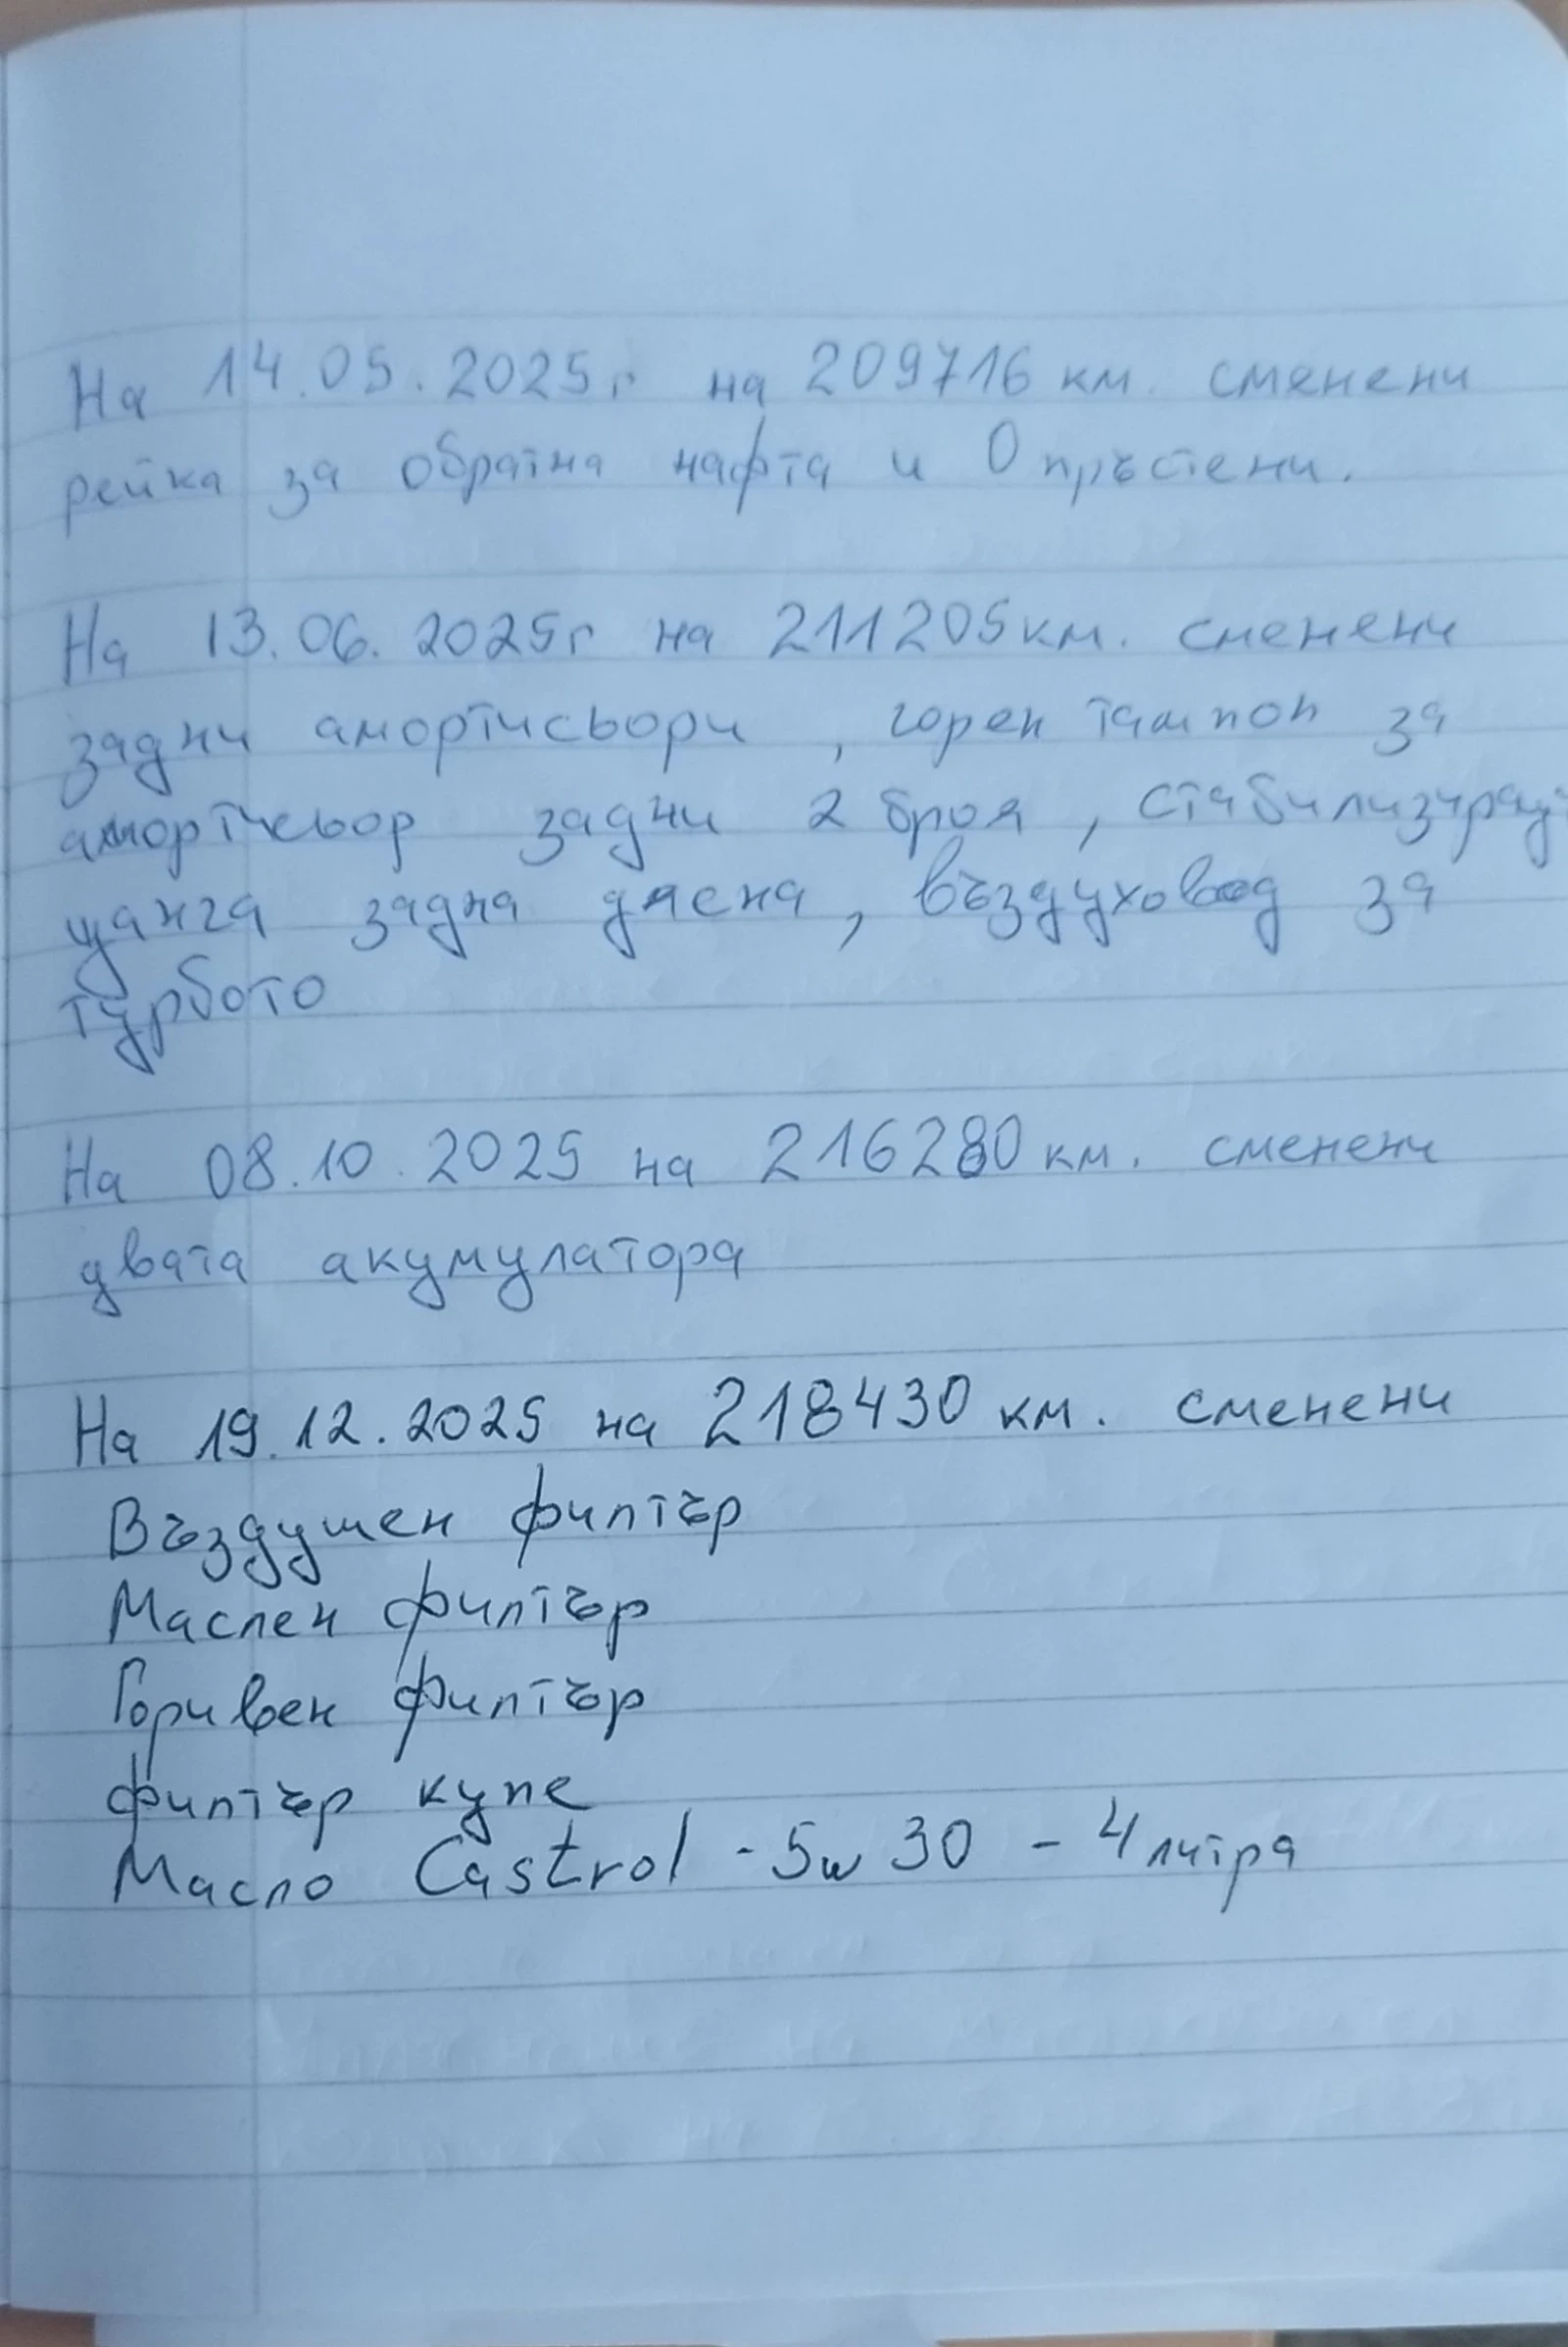 На 14.05.2025г на 209716 км. сменени
рейка за обратна нафта и О пръстени.
На 13.06.2025г на 211205 км. сменени
задни амортисьори, горен тампон за
амортисьор задни 2 броя, стабилизираща
щанга задна дясна, въздуховод за
турбото
На 08.10.2025 на 216280 км. сменени
двата акумулатора
На 19.12.2025 на 218430 км. сменени
Въздушен филтър
Маслен филтър
Горивен филтър
филтър купе
Масло Castrol - 5w 30 - 4 литра